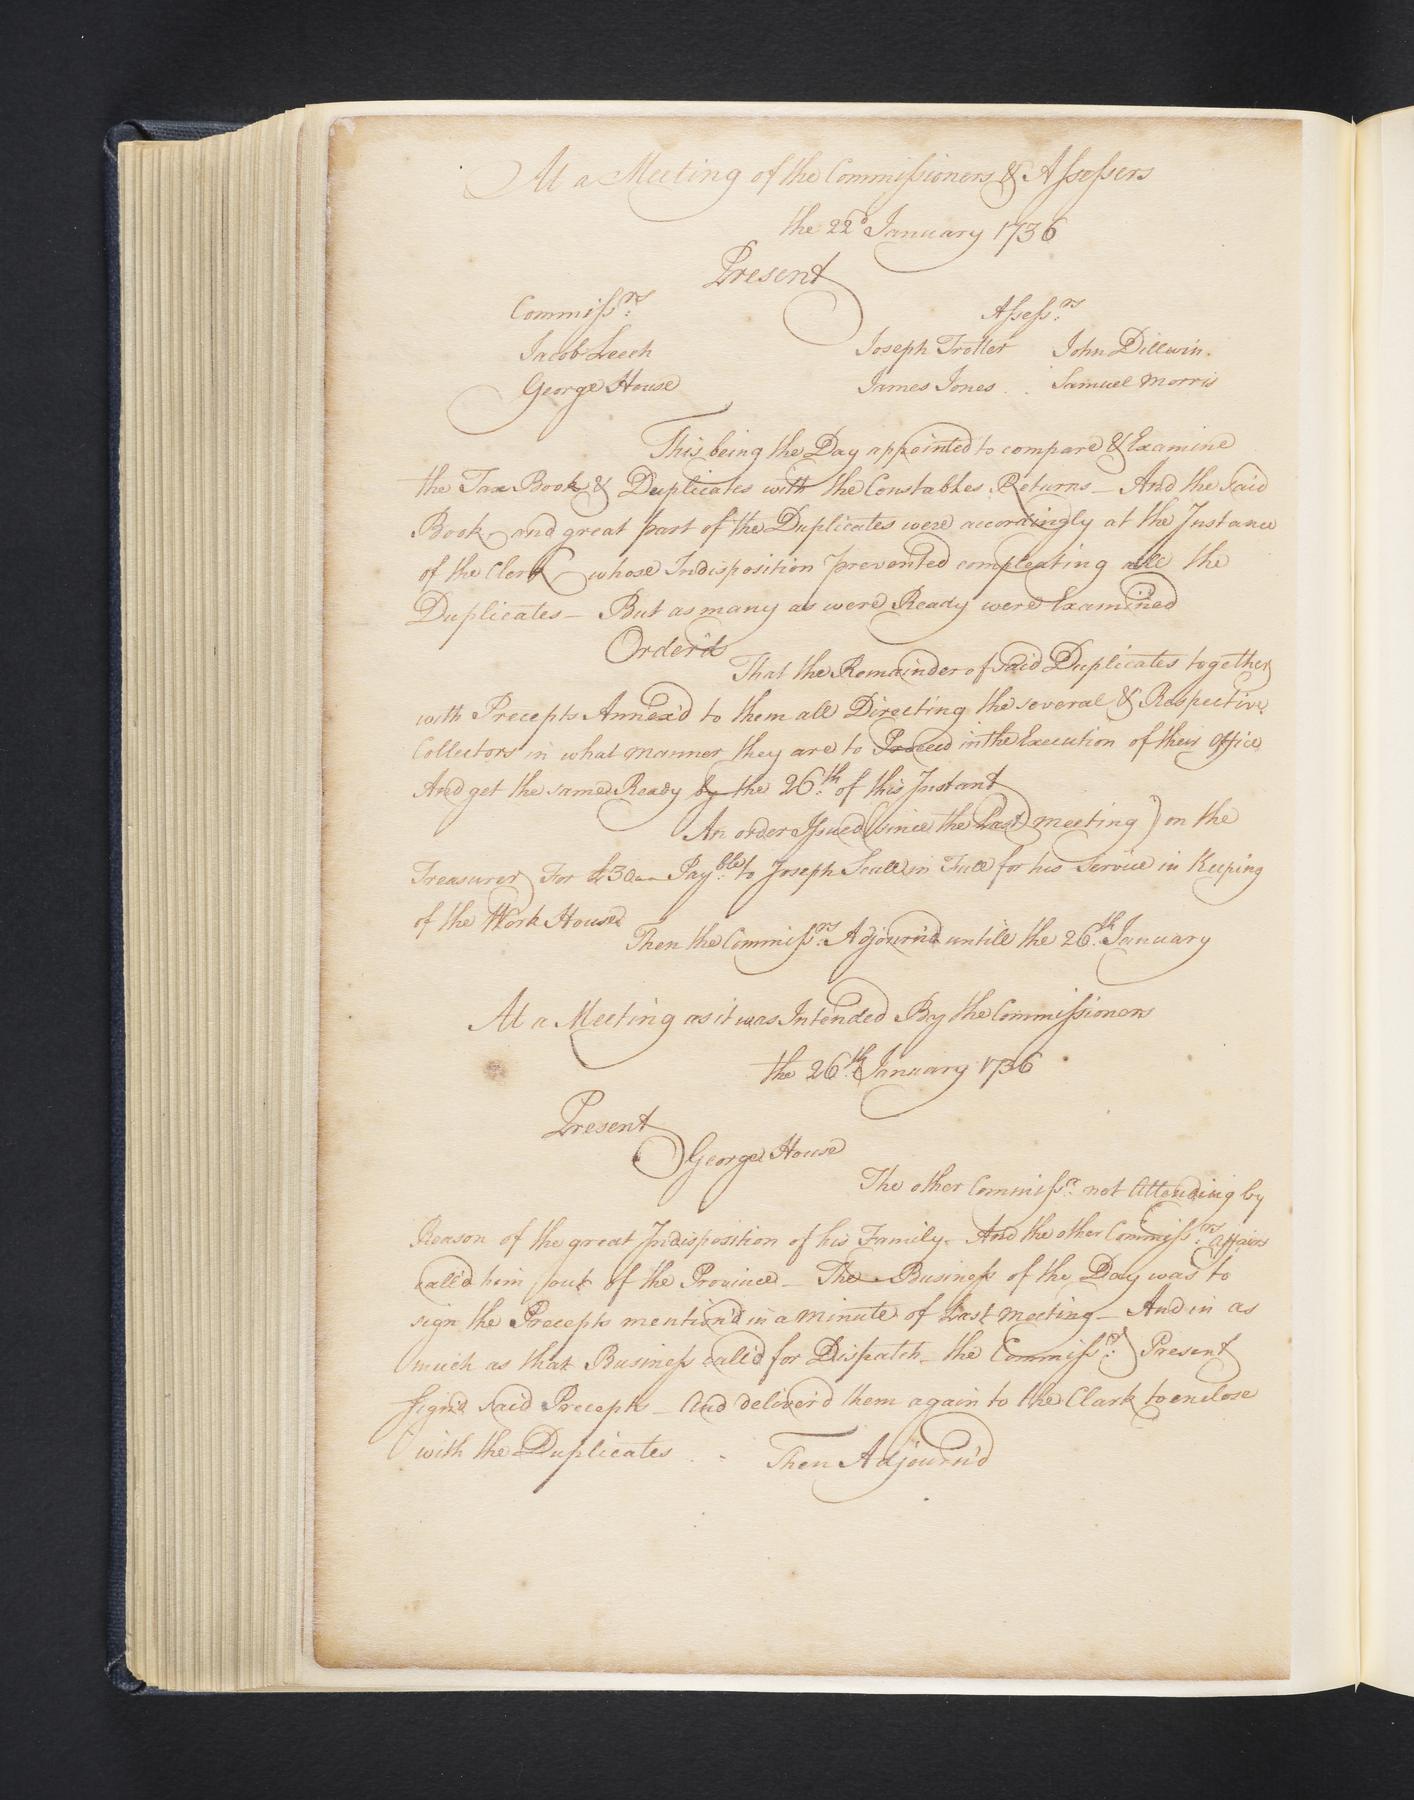 At a Meeting of the Commissioners & Assessers
the 22d January 1736
Present
Commissrs: Assessrs:
Jacob Leech Joseph Trotter John Dillwin
George House James Jones Samuel Morris
This being the Day appointed to compare & Examine
the Tax Book & Duplicates with the Constables Returns – And the said
Book and great part of the Duplicates were accordingly at the Instance
of the Clerk whose Indisposition prevented compleating all the
Duplicates – But as many as were Ready were Examined
Order'd
That the Remainder of said Duplicates together
with Precepts Annex'd to them all Directing the several & Respective
Collectors in what manner they are to Proceed in the Execution of their Office
And get the same Ready by the 26th: of this Instant
An order Issued (since the Last meeting) on the
Treasurer For £30 Payble: to Joseph Scull in Full for his Service in Keeping
of the Work House
Then the Commissrs: Adjourn'd untill the 26th: January
At a Meeting as it was Intended By the Commissioners
the 26th: January 1736
Present
George House
The other Commissr: not Attending by
Reason of the great Indisposition of his Family – And the other Commissrs: affairs
call'd him out of the Province – The Business of the Day was to
sign the Precepts mention'd in a minute of Last Meeting – And in as
much as that Business call'd for Dispatch – the Commissr: Present
sign'd said Precepts – And deliver'd them again to the Clark to enclose
with the Duplicates Then Adjourn'd